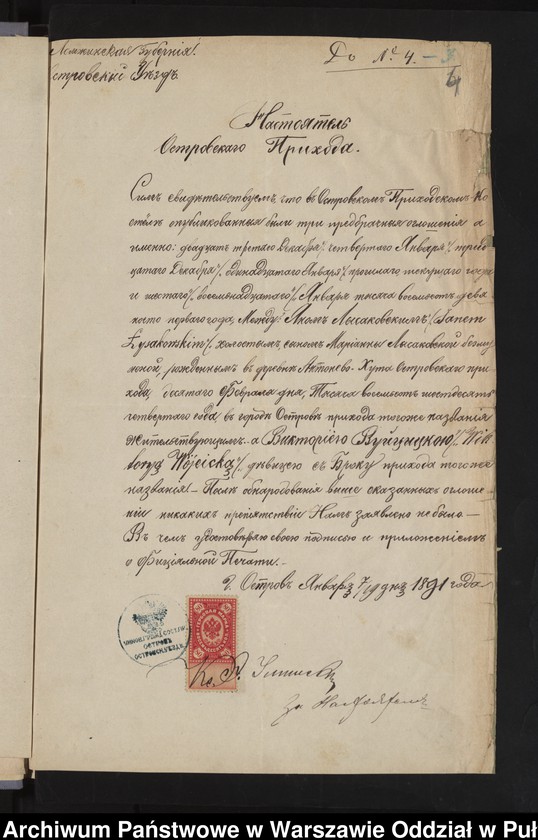 Ломжинская Губернія.
Островскій Уѣздъ
До № 4.
4
Настоятель
Островскаго Прихода.
Симъ свидѣтельствуемъ что въ Островскомъ Приходскомъ Ко
стёлѣ опубликованныя были три предбрачныя оглошенія а
именно: двадцать третаго Декабря/ четвертаго Января/, трид
цатаго Декабря/, одинадцатаго Января/ прошлаго текущаго года
и шестаго/ восемьнадцатаго/ Января тысяча восемьсотъ девя
носто перваго года, Между: Яномъ Лысаковскимъ/: Janem
Łysakowskim/: холостымъ сыномъ Маріанны Лысаковской безму
жной, рожденнымъ въ деревнѣ Антонево-Хута Островскаго при
хода, десятаго Февраля дня, Тысяча восемьсотъ шестьдесятъ
четвертаго года, въ городѣ Островѣ прихода тогоже названія
жительствующимъ. а Викторіею Вуйцицкою/: Wik
toryą Wójcicką/: дѣвицею съ Броку прихода тогоже
названія. Послѣ обнародованія выше сказанныхъ оглоше
ніи никакихъ препятствій Намъ заявлено не было.
Въ чемъ удостовѣряю своею подписью и приложеніемъ
оффиціяльной Печати.
г. Островъ Января 7/19 дня 1891 года
Кс. К.
За Настоятеля
Archiwum Państwowe w Warszawie Oddział w Puł